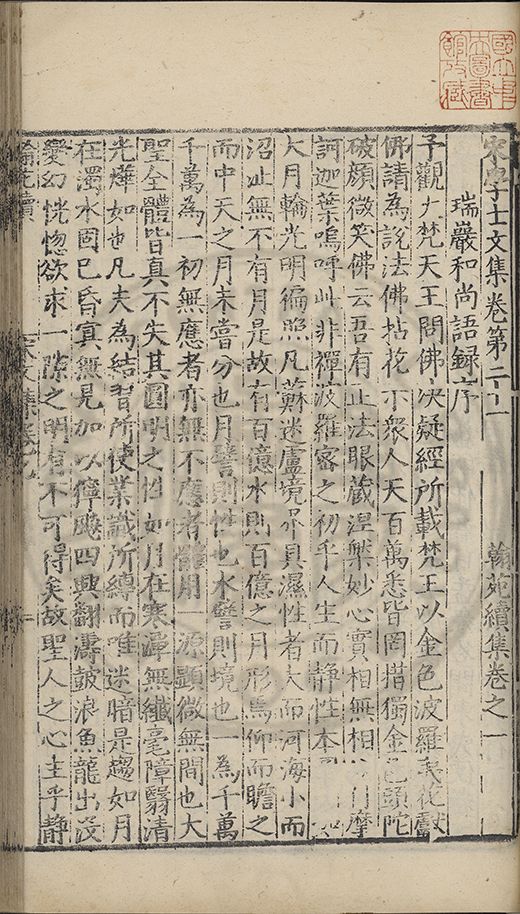 國立中
央圖書
館收藏
宋學士文集卷第二十一 翰苑續集卷之一
瑞巖和尚語録序
予觀大梵天王問佛決疑經所載梵王以金色波羅㲲花獻
佛請為說法佛拈花示衆人天百萬悉皆罔措獨金色頭陀
破顔微笑佛云吾有正法眼藏涅槃妙心實相無相 付摩
訶迦葉嗚呼此非禪波羅密之初乎人生而靜性本
大月輪光明徧照凡蘇迷盧境界具濕性者大而河海小而
沼沚無不有月是故有百億水則百億之月形焉仰而瞻之
而中天之月未嘗分也月譬則性也水譬則境也一為千萬
千萬為一初無應者亦無不應者體用一源顯微無間也大
聖全體皆真不失其圓明之性如月在寒潭無纖毫障翳清
光燁如也凡夫為結習所使業識所縛而唯迷暗是趨如月
在濁水固巳昏冥無見加以獰飇四興翻濤鼓浪魚龍出沒
變幻恍惚欲求一隙之明有不可得矣故聖人之心主乎靜